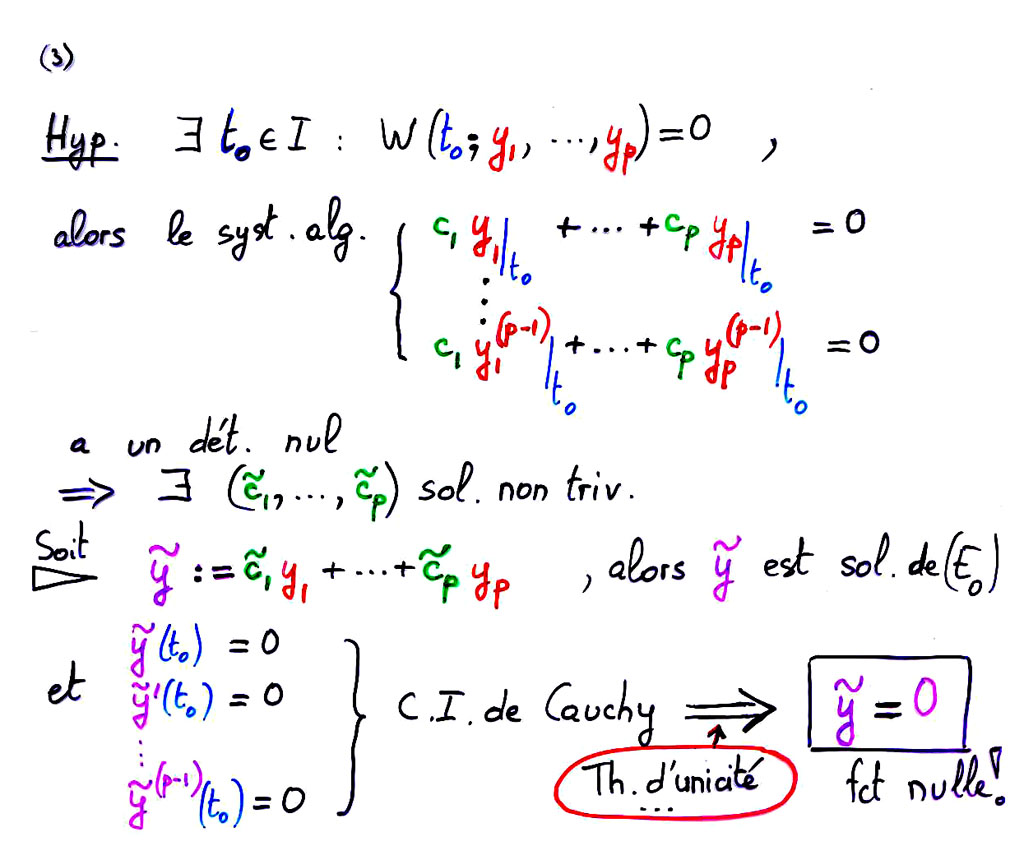 (3)
Hyp. ∃ t₀ ∈ I : W(t₀; y₁, ..., yₚ) = 0 ,
alors le syst. alg. { c₁ y₁|t₀ + ... + cₚ yₚ|t₀ = 0
⋮
c₁ y₁^(p-1)|t₀ + ... + cₚ yₚ^(p-1)|t₀ = 0
a un dét. nul
⟹ ∃ (c̃₁, ..., c̃ₚ) sol. non triv.
Soit ỹ := c̃₁ y₁ + ... + c̃ₚ yₚ , alors ỹ est sol. de (E₀)
et ỹ(t₀) = 0
ỹ'(t₀) = 0
⋮
ỹ^(p-1)(t₀) = 0
} C.I. de Cauchy ⟹ ỹ = 0
↑
Th. d'unicité
...
fct nulle!